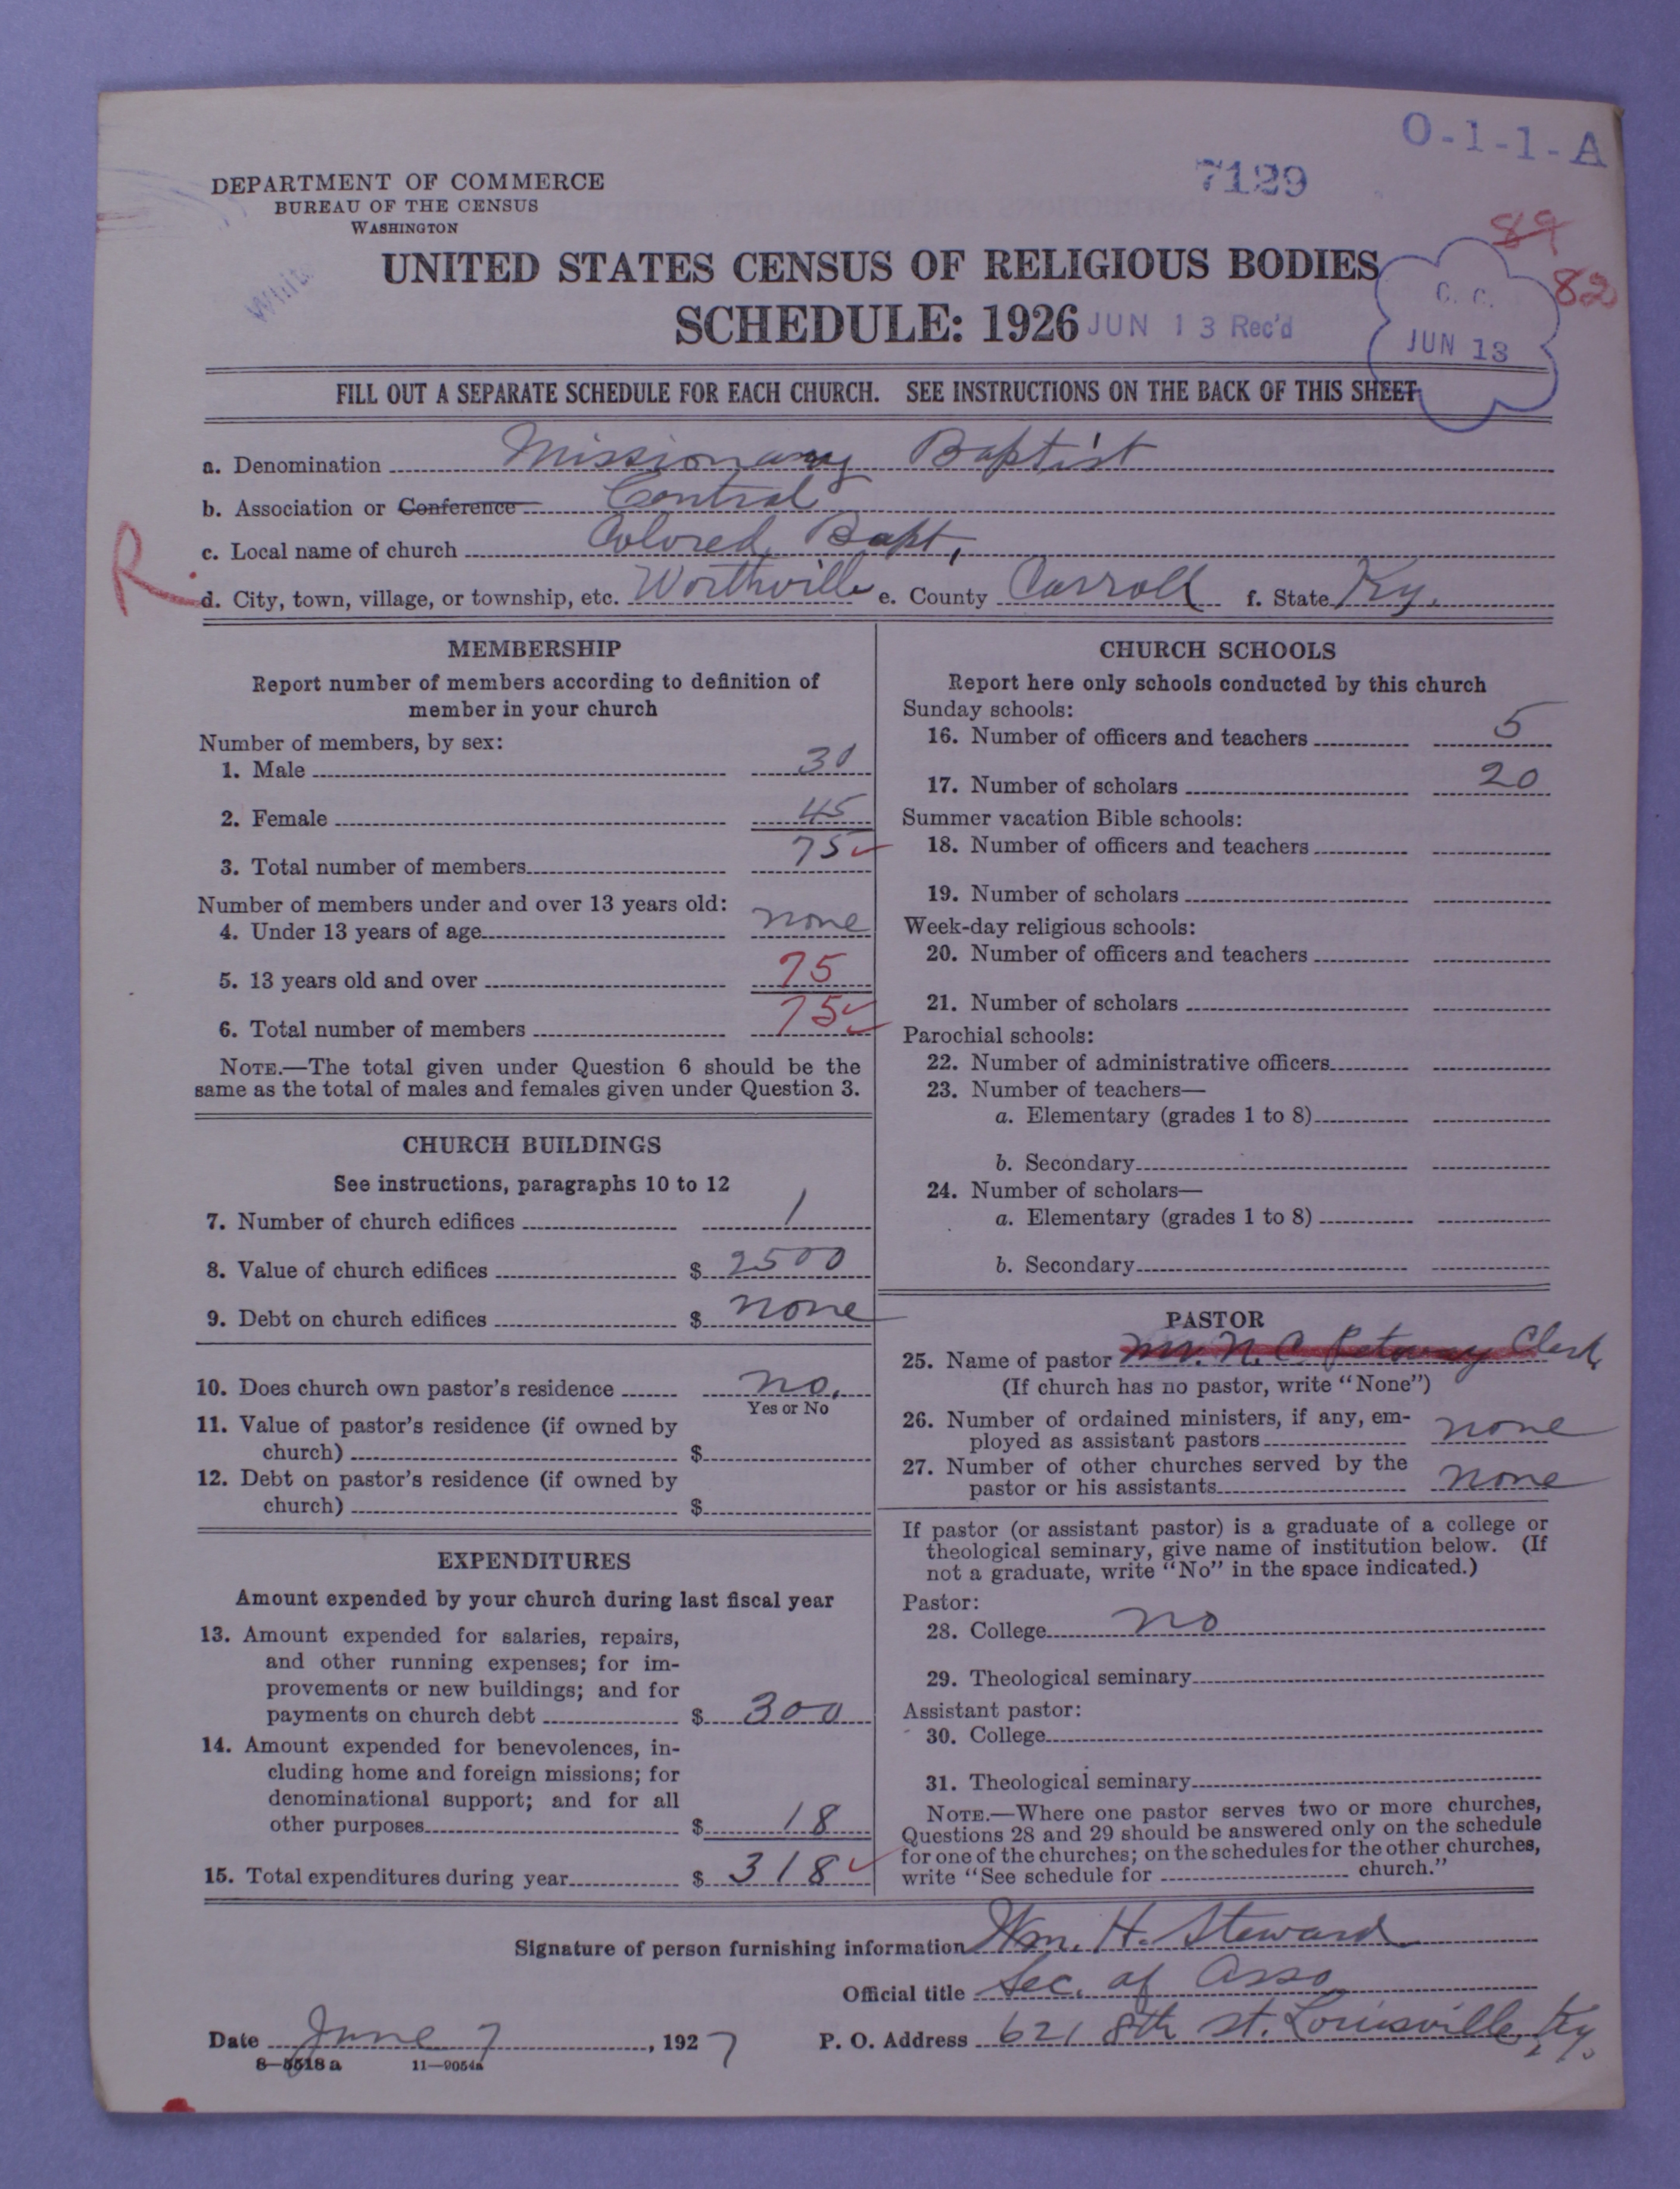 O-1-1-A
7129
DEPARTMENT OF COMMERCE
BUREAU OF THE CENSUS
WASHINGTON
89
82
White
UNITED STATES CENSUS OF RELIGIOUS BODIES
SCHEDULE: 1926
JUN 13 Rec'd
C. C.
JUN 13
FILL OUT A SEPARATE SCHEDULE FOR EACH CHURCH. SEE INSTRUCTIONS ON THE BACK OF THIS SHEET
a. Denomination Missionary Baptist
b. Association or Conference Central
c. Local name of church Colored Bapt,
R.
d. City, town, village, or township, etc. Worthville e. County Carroll f. State Ky.
MEMBERSHIP
Report number of members according to definition of
member in your church
Number of members, by sex:
1. Male 30
2. Female 45
3. Total number of members 75 ✓
Number of members under and over 13 years old:
4. Under 13 years of age none
5. 13 years old and over 75
6. Total number of members 75 ✓
NOTE.—The total given under Question 6 should be the
same as the total of males and females given under Question 3.
CHURCH BUILDINGS
See instructions, paragraphs 10 to 12
7. Number of church edifices 1
8. Value of church edifices $ 2500
9. Debt on church edifices $ none
10. Does church own pastor's residence no.
Yes or No
11. Value of pastor's residence (if owned by
church) $
12. Debt on pastor's residence (if owned by
church) $
EXPENDITURES
Amount expended by your church during last fiscal year
13. Amount expended for salaries, repairs,
and other running expenses; for im-
provements or new buildings; and for
payments on church debt $ 300
14. Amount expended for benevolences, in-
cluding home and foreign missions; for
denominational support; and for all
other purposes $ 18
15. Total expenditures during year $ 318 ✓
CHURCH SCHOOLS
Report here only schools conducted by this church
Sunday schools:
16. Number of officers and teachers 5
17. Number of scholars 20
Summer vacation Bible schools:
18. Number of officers and teachers
19. Number of scholars
Week-day religious schools:
20. Number of officers and teachers
21. Number of scholars
Parochial schools:
22. Number of administrative officers
23. Number of teachers—
a. Elementary (grades 1 to 8)
b. Secondary
24. Number of scholars—
a. Elementary (grades 1 to 8)
b. Secondary
PASTOR
25. Name of pastor N. C. Clerk
(If church has no pastor, write "None")
26. Number of ordained ministers, if any, em-
ployed as assistant pastors none
27. Number of other churches served by the
pastor or his assistants none
If pastor (or assistant pastor) is a graduate of a college or
theological seminary, give name of institution below. (If
not a graduate, write "No" in the space indicated.)
Pastor:
28. College no
29. Theological seminary
Assistant pastor:
30. College
31. Theological seminary
NOTE.—Where one pastor serves two or more churches,
Questions 28 and 29 should be answered only on the schedule
for one of the churches; on the schedules for the other churches,
write "See schedule for church."
Signature of person furnishing information Wm. H. Steward
Official title Sec. of Asso
Date June 7, 1927 P. O. Address 621 8th st. Louisville, Ky.
8—5518 a 11—9054a